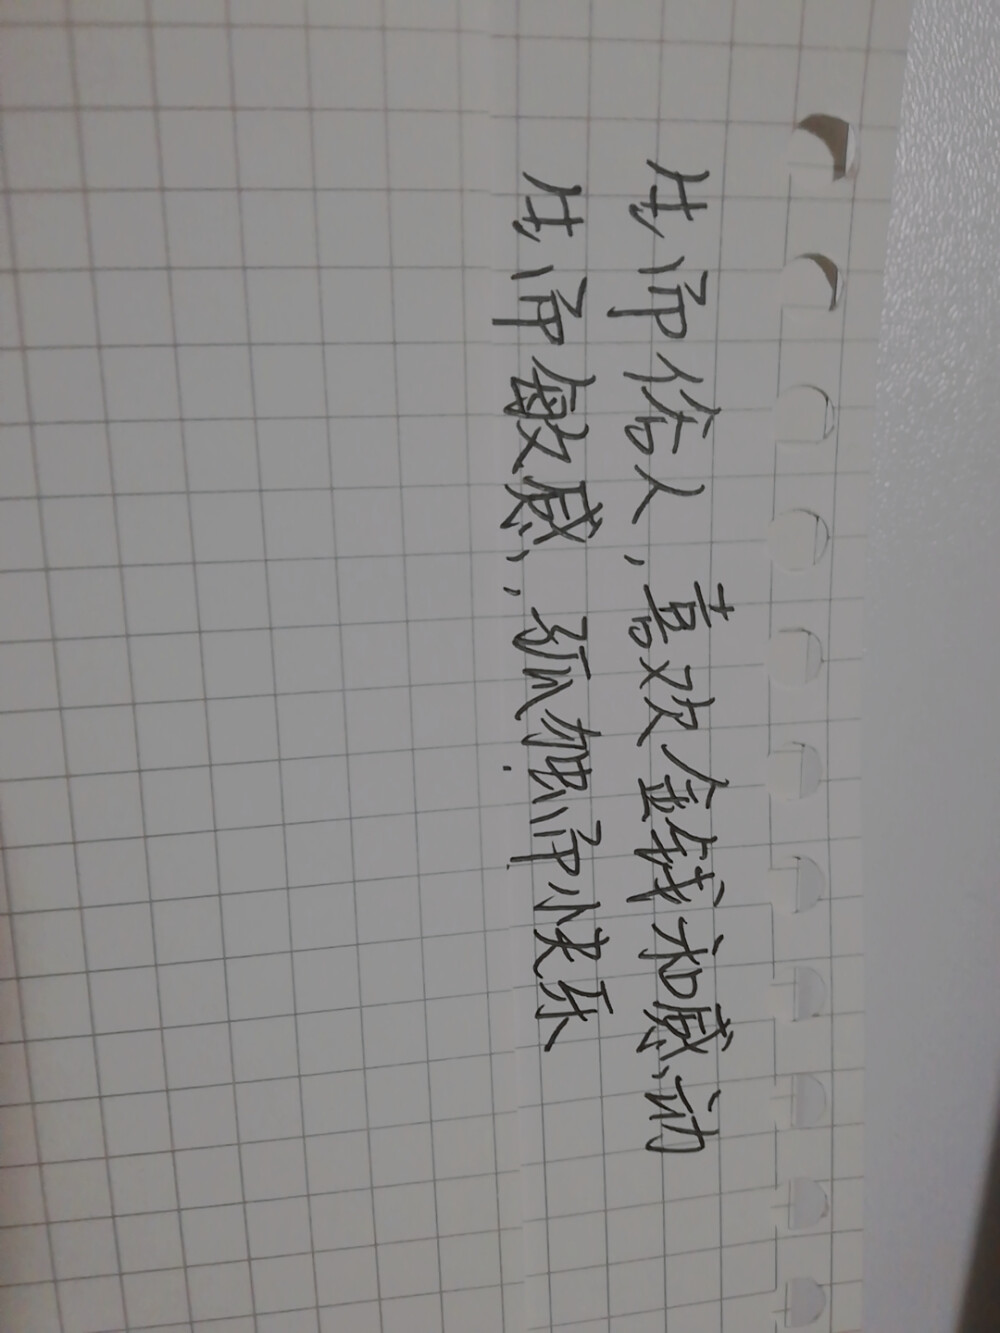 生而俗人，喜欢金钱和感动
生而敏感，孤独而快乐